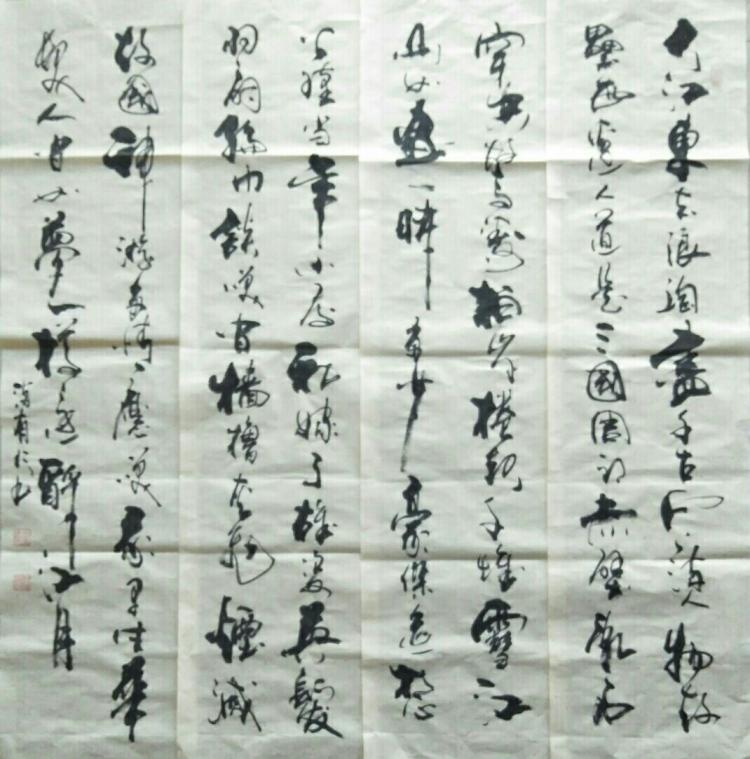 大江東去浪淘盡千古風流人物故
壘西邊人道是三國周郎赤壁亂石
穿空驚濤拍岸捲起千堆雪江
山如畫一時多少豪傑遙想
公瑾當年小喬初嫁了雄姿英發
羽扇綸巾談笑間檣櫓灰飛煙滅
故國神游多情應笑我早生華
髮人間如夢一樽還酹江月
有仁書